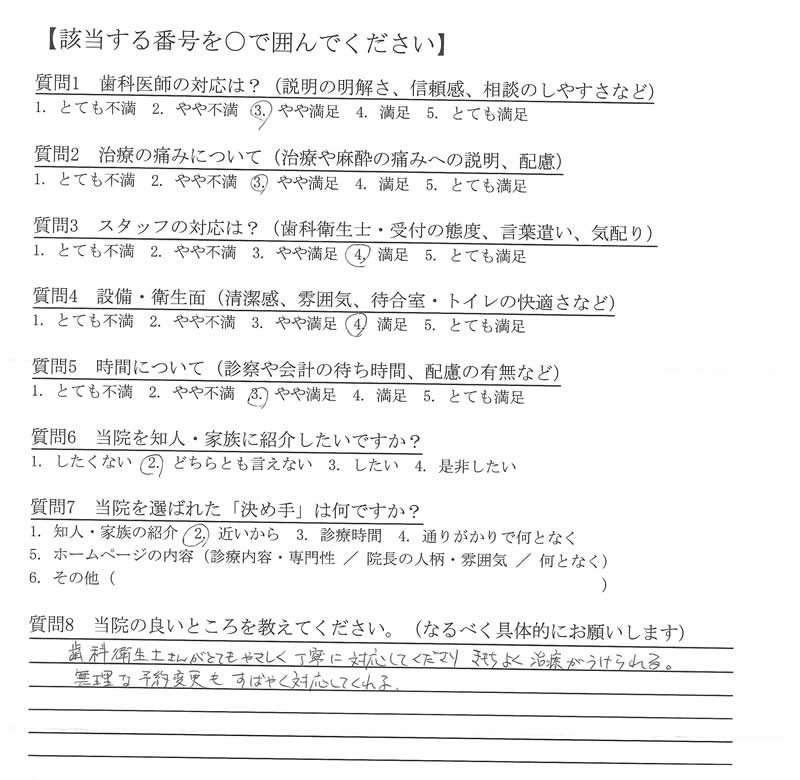 【該当する番号を○で囲んでください】
質問1 歯科医師の対応は？（説明の明解さ、信頼感、相談のしやすさなど）
1. とても不満 2. やや不満 3. やや満足 4. 満足 5. とても満足
質問2 治療の痛みについて（治療や麻酔の痛みへの説明、配慮）
1. とても不満 2. やや不満 3. やや満足 4. 満足 5. とても満足
質問3 スタッフの対応は？（歯科衛生士・受付の態度、言葉遣い、気配り）
1. とても不満 2. やや不満 3. やや満足 4. 満足 5. とても満足
質問4 設備・衛生面（清潔感、雰囲気、待合室・トイレの快適さなど）
1. とても不満 2. やや不満 3. やや満足 4. 満足 5. とても満足
質問5 時間について（診察や会計の待ち時間、配慮の有無など）
1. とても不満 2. やや不満 3. やや満足 4. 満足 5. とても満足
質問6 当院を知人・家族に紹介したいですか？
1. したくない 2. どちらとも言えない 3. したい 4. 是非したい
質問7 当院を選ばれた「決め手」は何ですか？
1. 知人・家族の紹介 2. 近いから 3. 診療時間 4. 通りがかりで何となく
5. ホームページの内容（診療内容・専門性 ／ 院長の人柄・雰囲気 ／ 何となく）
6. その他（ ）
質問8 当院の良いところを教えてください。（なるべく具体的にお願いします）
歯科衛生士さんがとてもやさしく丁寧に対応してくださり きもちよく治療がうけられる。
無理な予約変更もすばやく対応してくれる.